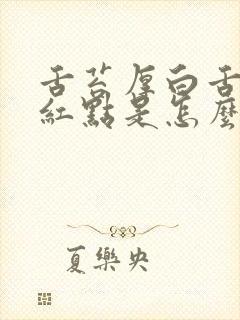 舌苔厚白舌
紅點是怎麼
夏樂央